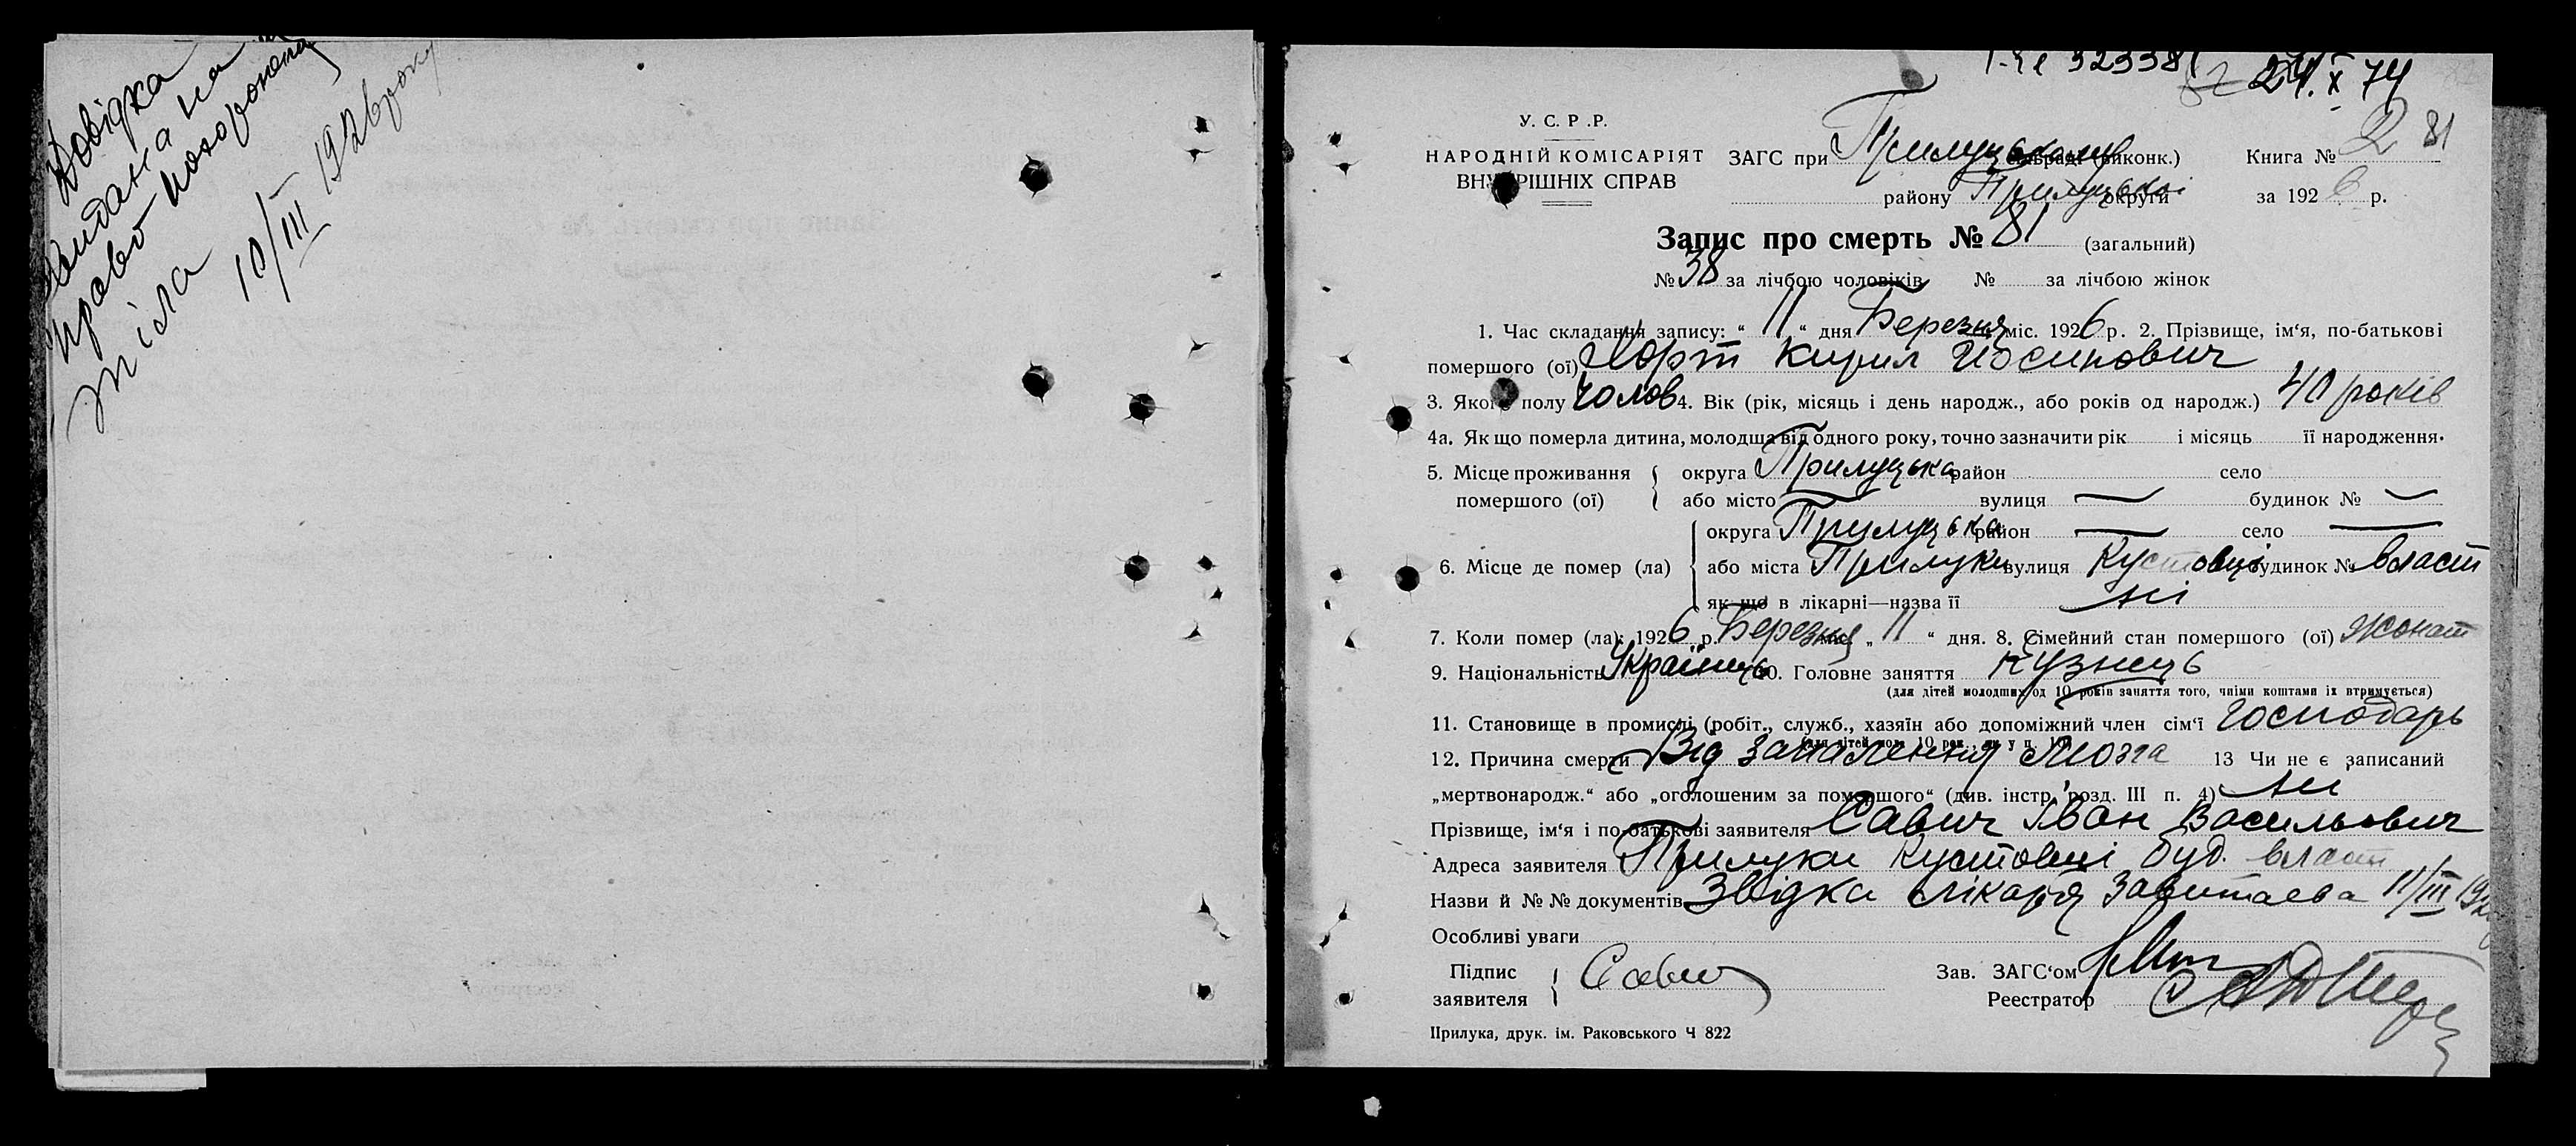 Довідка
видана на
право похоронення
тіла 10/III 1926 року
24.X 74
У. С. Р. Р.
НАРОДНІЙ КОМІСАРІЯТ
ВНУТРІШНІХ СПРАВ
ЗАГС при Прилуцькому (виконк.) Книга № 2 81
району Прилуцької округи за 1926 р.
Запис про смерть № 81 (загальний)
№ 38 за лічбою чоловіків № за лічбою жінок
1. Час складання запису: “ 11 “ дня Березня міс. 1926 р. 2. Прізвище, ім‘я, по-батькові
помершого (ої) Хорт Кирил Йосипович
3. Якого полу чолов 4. Вік (рік, місяць і день народж., або років од народж.) 40 років
4а. Як що померла дитина, молодша від одного року, точно зазначити рік і місяць її народження.
5. Місце проживання помершого (ої) округа Прилуцька район село
або місто вулиця — будинок № —
6. Місце де помер (ла) округа Прилуцька район — село —
або міста Прилуки вулиця Кустовці будинок № власт
як що в лікарні—назва її ні
7. Коли помер (ла): 1926 р. Березня міс. „ 11 “ дня. 8. Сімейний стан помершого (ої) жонат
9. Національність Українець 10. Головне заняття Кузнець
(для дітей молодших од 10 років заняття того, чиїми коштами їх втримується)
11. Становище в промислі (робіт., служб., хазяїн або допоміжний член сім‘ї господарь
12. Причина смерти Від запалення мозга 13 Чи не є записаний
„мертвонародж.“ або „оголошеним за помершого“ (див. інстр. розд. III п. 4) ні
Прізвище, ім‘я і по-батькові заявителя Савич Іван Васильович
Адреса заявителя Прилуки Кустовці буд. власт
Назви й №№ документів Звідка лікаря Завитаева 11/III 192
Особливі уваги
Підпис заявителя Савич
Зав. ЗАГС‘ом
Реестратор
Прилука, друк. ім. Раковського Ч 822